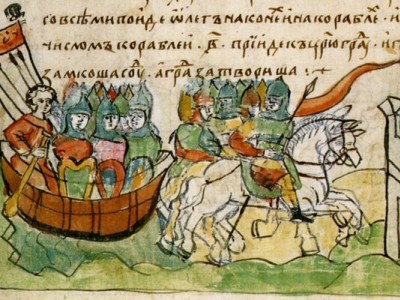 совсѣми поиде ѡлегъ на конеⷯ и на кораблеⷯ · и
числомъ кораблей · ҂в҃ · прїиде къ цр҃юграⷣ · и г
замкоша соуⷣ · а граⷣ затвориша ·